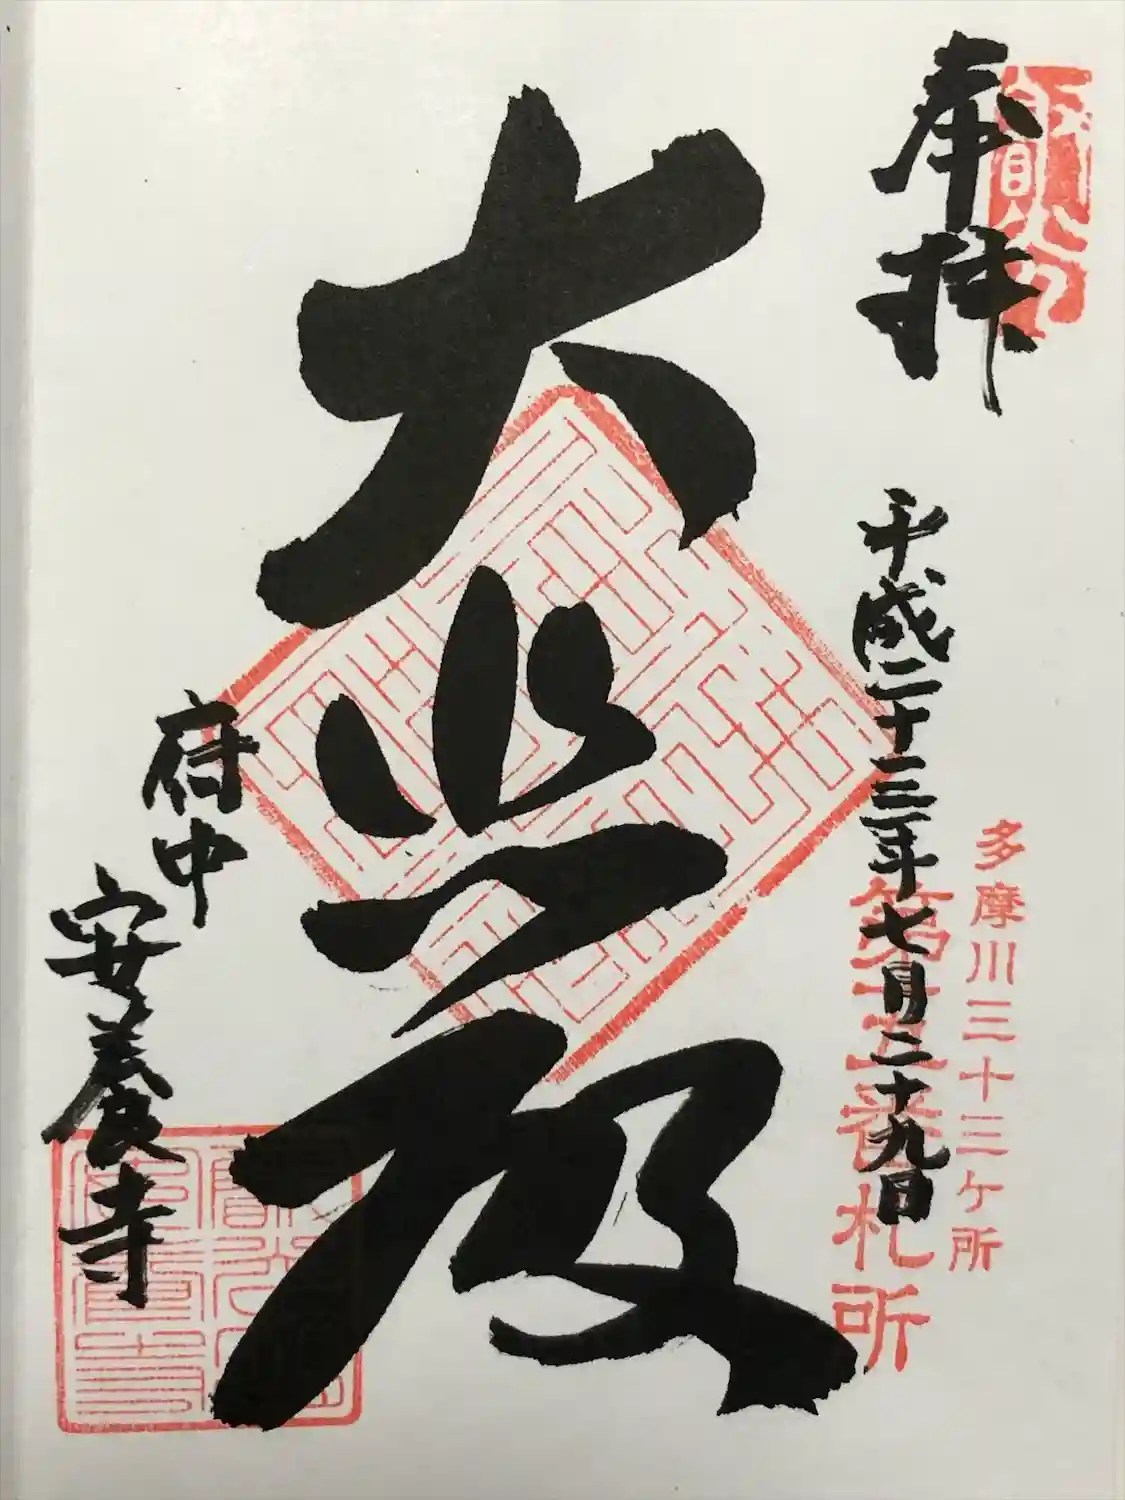 奉拝
多摩川三十三ケ所
第十五番札所
平成二十三年七月二十九日
大悲殿
府中
安養寺